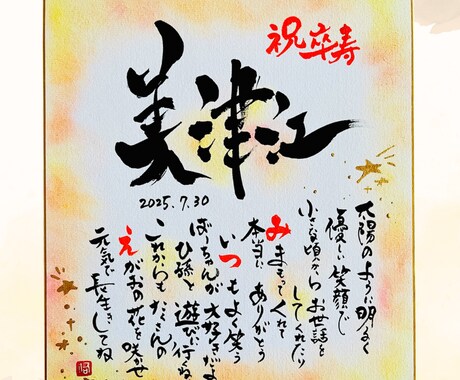 祝卒寿
美津江
2025.7.30
太陽のように明るく
優しい笑顔で
小さな頃からお世話を
してくれたり
みまもってくれて
本当に ありがとう
いつもよく笑う
ばーちゃんが 大好きだよ
ひ孫と 遊びに行くね
これからも たくさんの
えがおの花を 咲かせ
元気で 長生きしてね